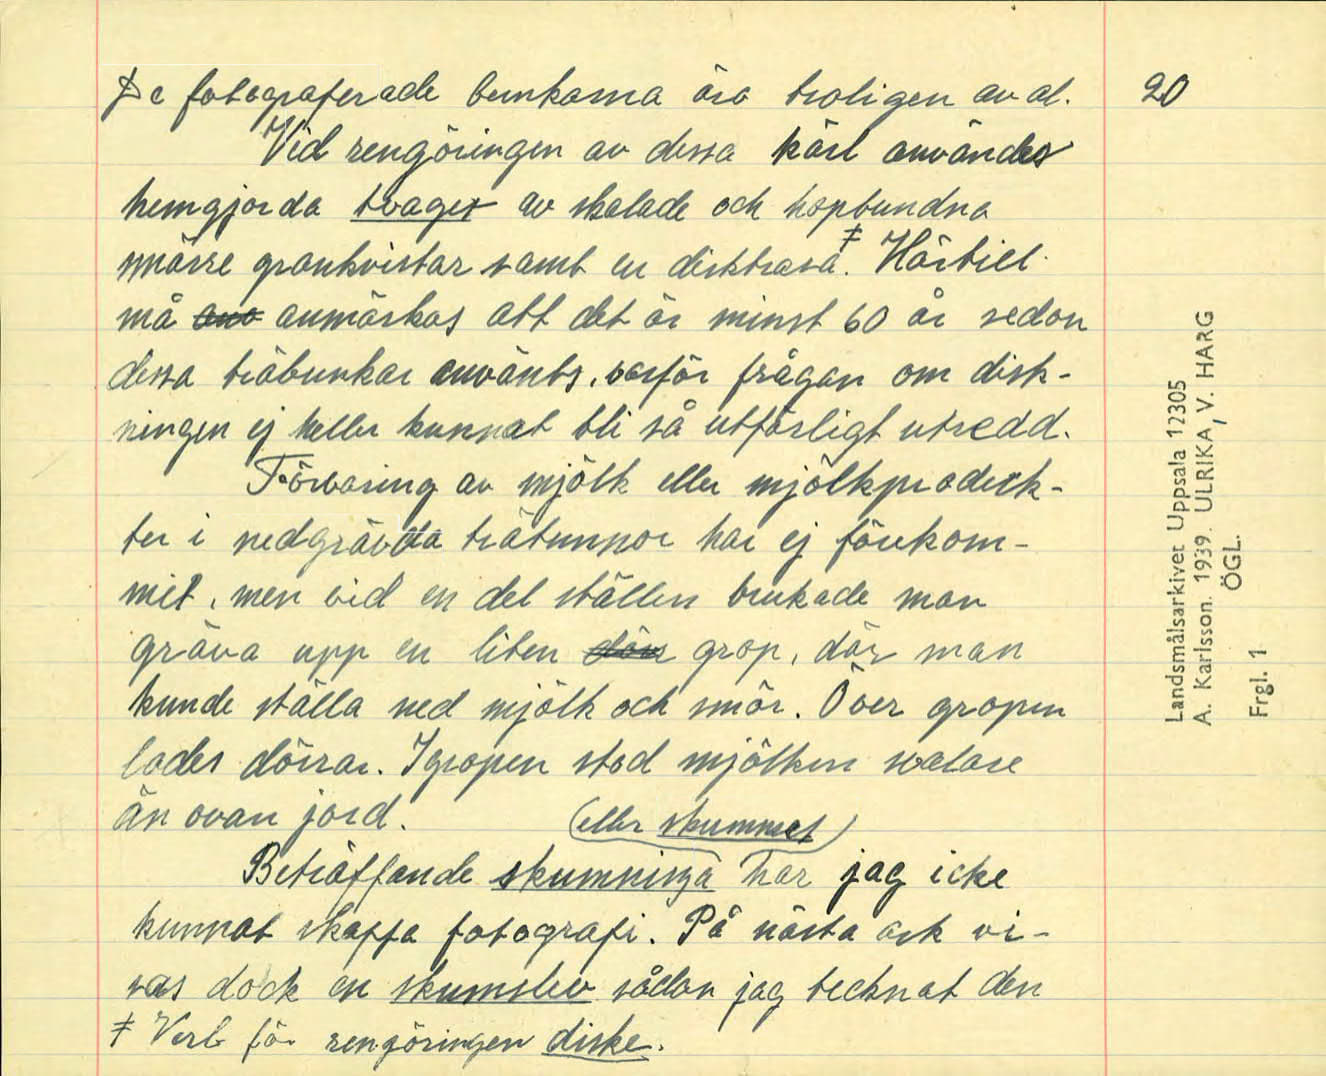 De fotograferade bunkarna äro troligen av al.
20
Vid rengöringen av dessa kärl användes
hemgjorda tvager av skalade och hopbundna
smärre grankvistar samt en disktrasa.ꞙ Härtill
må ano anmärkas att det är minst 60 år sedan
dessa träbunkar använts, varför frågan om disk-
ningen ej heller kunnat bli så utförligt utredd.
Förvaring av mjölk eller mjölkproduk-
ter i nedgrävda trätunnor har ej förekom-
mit, men vid en del ställen brukade man
gräva upp en liten där grop, där man
kunde ställa ned mjölk och smör. Över gropen
lades dörrar. I gropen stod mjölken svalare
än ovan jord.
(eller skummet)
Beträffande skumninga har jag icke
kunnat skaffa fotografi. På nästa ark vi-
sas dock en skumslev sådan jag tecknat den
ꞙ Verb för rengöringen diske.
Landsmålsarkivet Uppsala 12305
A. Karlsson. 1939. ULRIKA, V. HARG
ÖGL.
Frgl. 1